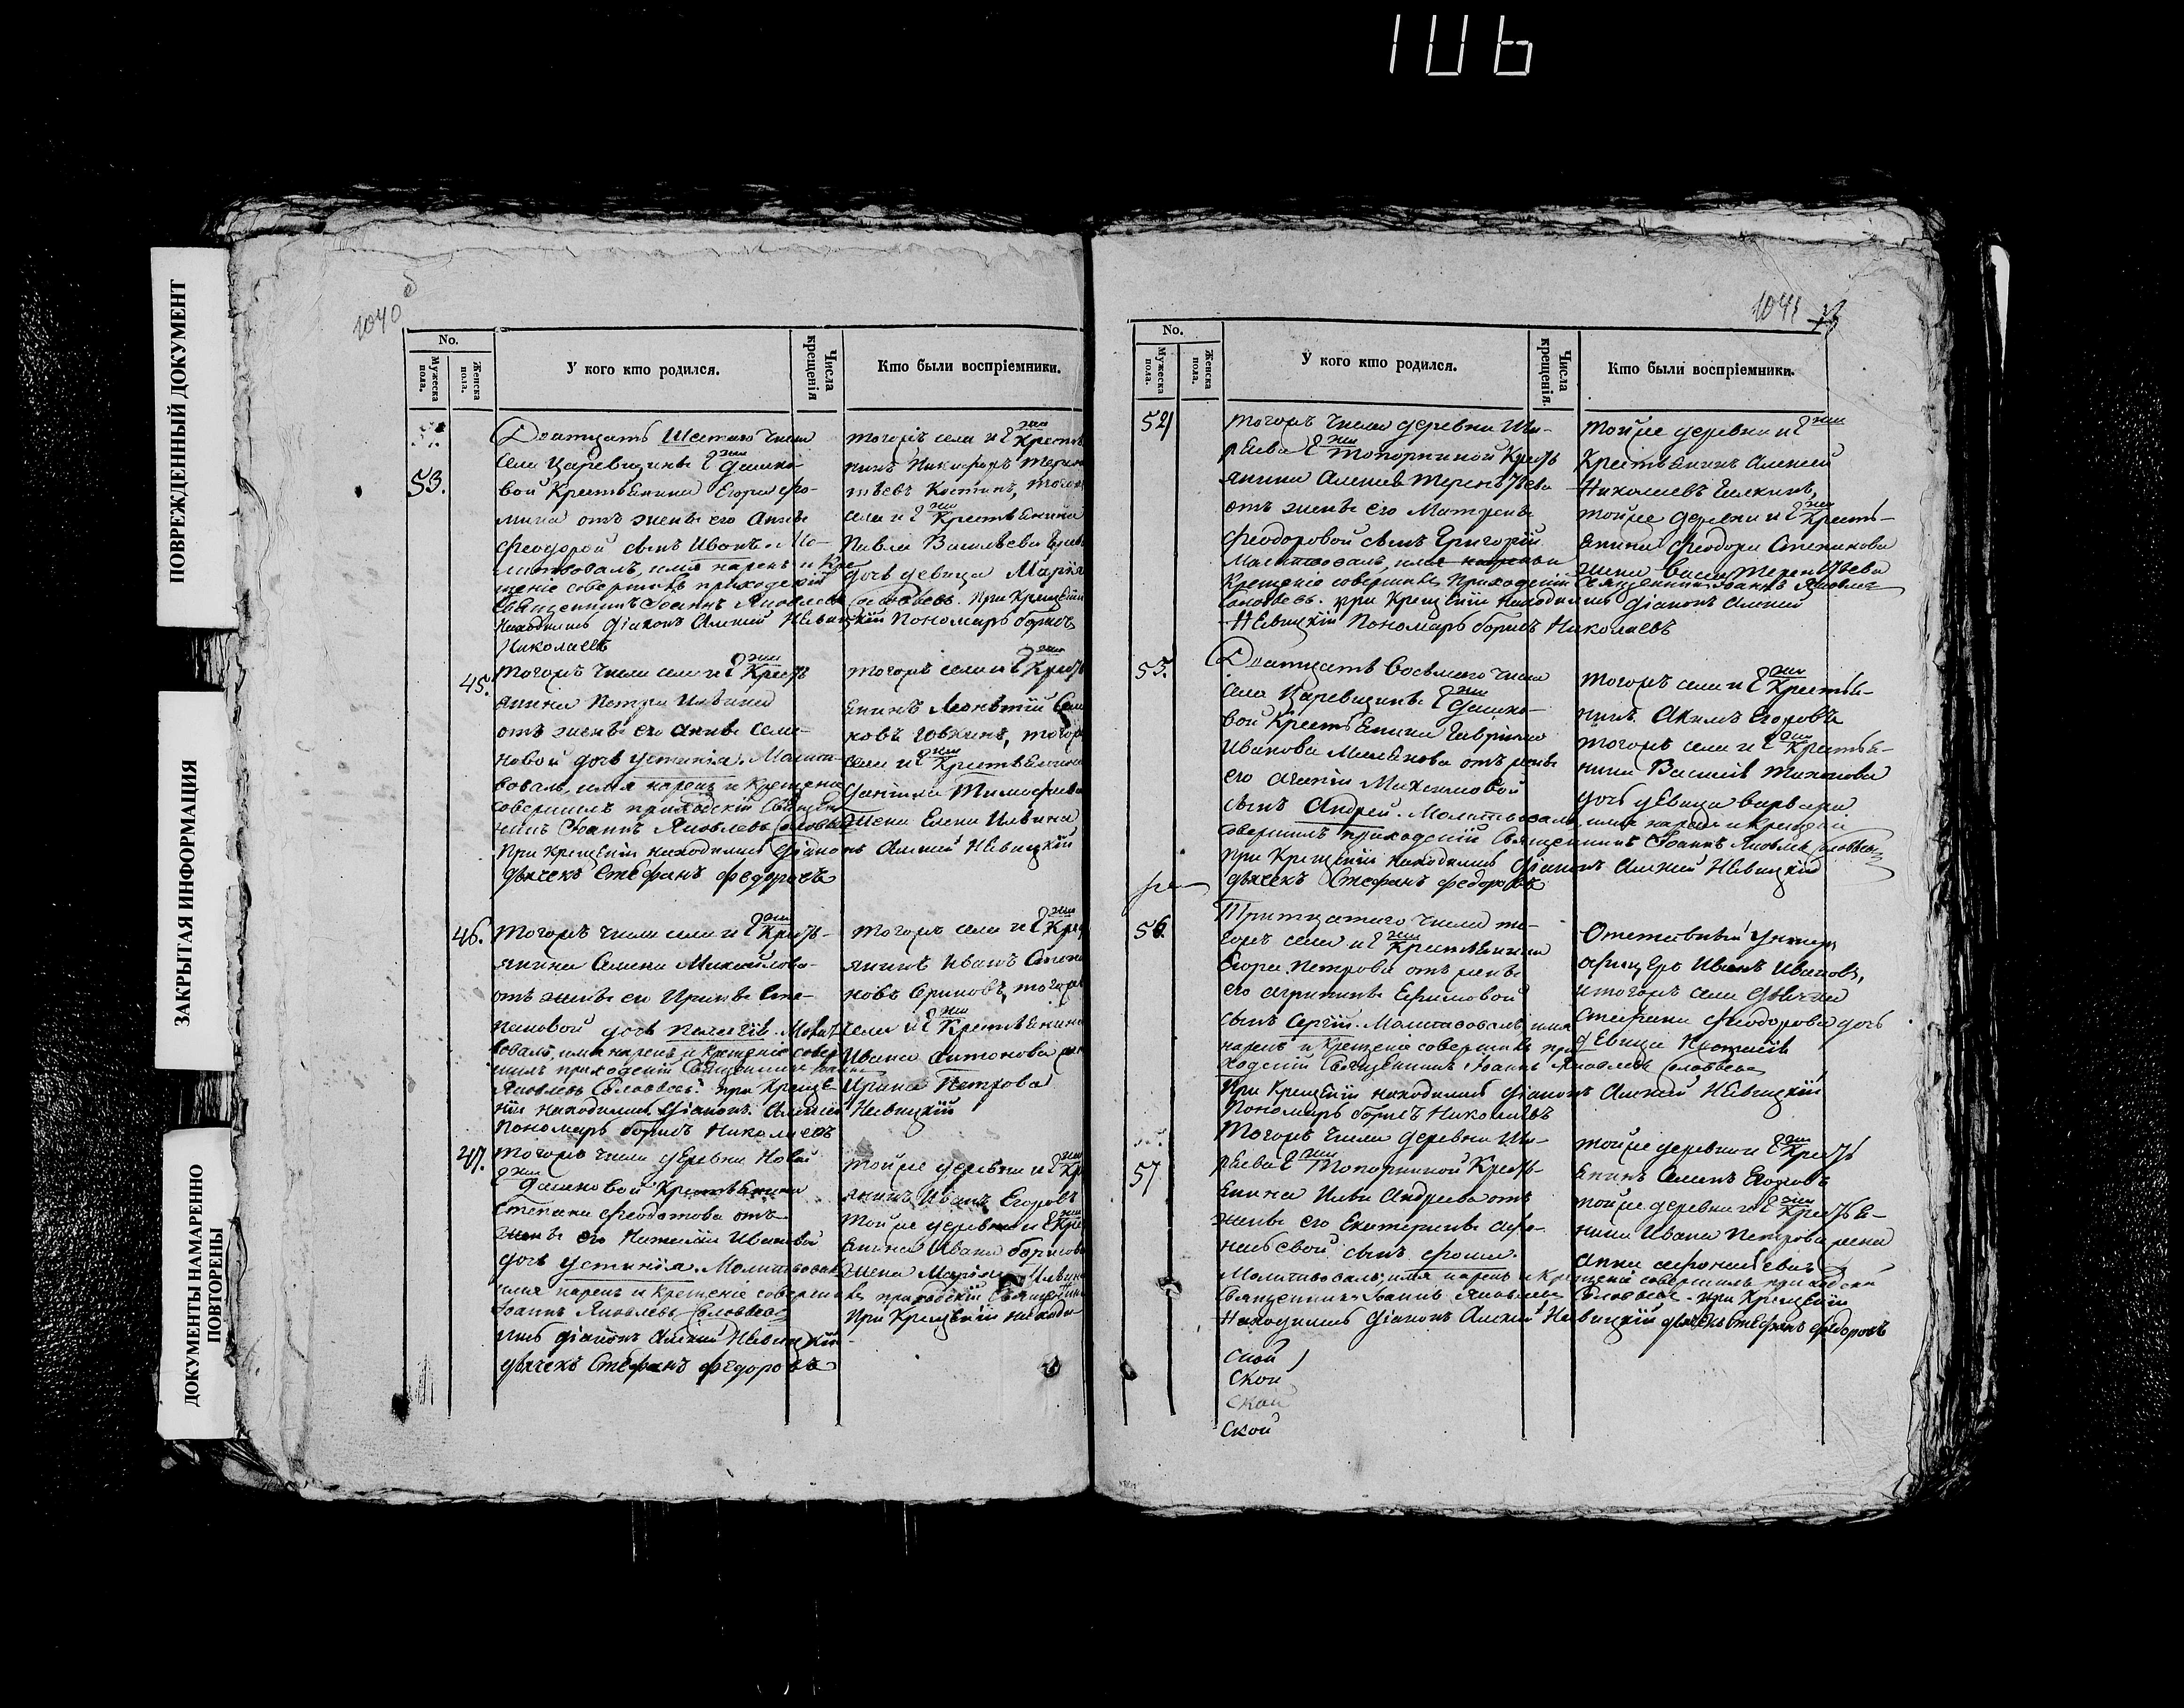 106
ПОВРЕЖДЕННЫЙ ДОКУМЕНТ
ЗАКРЫТАЯ ИНФОРМАЦИЯ
ДОКУМЕНТЫ НАМАРЕННО
ПОВТОРЕНЫ
1040
No.
Мужеска пола.
Женска пола.
У кого кто родился.
Числа крещенія
Кто были воспріемники.
53.
Дватцать Шестаго числа
села Царевщины Г жи Дашко-
вой Крестьянина Егора Фо-
мина отъ жены его Анны
Феодорой сынъ Иванъ. Мо-
литвовалъ, имя нарекъ и Кре
щеніе совершилъ приходскій
Священникъ Іоаннъ Яковлевъ Соловьевъ. При Крещеніи
находились Діаконъ Алексій Невицкій Пономарь борисъ
Николаевъ
тогожъ села и Г жи Крестья
нинъ Никифоръ
Костинъ, тогож
села и Г жи Крестьянина
Павла Васильева
дочь девица Марія
45.
тогожъ числа села и Г жи Кресть
янина Петра Ильина
отъ жены его Анны Семе-
новой дочь Устинія. Молит-
вовалъ, имя нарекъ и Крещеніе
совершилъ приходскій Священ
никъ Іоаннъ Яковлевъ Соловьев
При Крещеніи находились Діаконъ Алексій Невицкій
дьячекъ Стефанъ Федоровъ
тогожъ села и Г жи Кресть
янинъ Леонтій Семе
новъ тогож
села и Г жи Крестьянина
Тимофеева
жена Елена Ильина
46.
тогожъ числа села и Г жи Кресть-
янина Семена Михайлова
отъ жены его Ирины Сте-
пановой дочь Пелагія. Молит
вовалъ, имя нарекъ и Крещеніе совер
шилъ приходскій Священникъ Іоаннъ
Яковлевъ Соловьевъ. при Креще
ніи находились Діаконъ Алексій Невицкій
Пономарь борисъ Николаевъ
тогожъ села и Г жи Крест
янинъ Иванъ Степа
новъ тогож
села и Г жи Крестьянина
Ивана Антонова жен
Ирина Петрова
47.
тогожъ числа деревни Новой
Г жи Дашковой Крестьянина
Степана Феодотова отъ
жены его Наталіи Ивановой
дочь Устинія. Молитвовалъ
имя нарекъ и Крещеніе совершилъ приходскій Священникъ
Іоаннъ Яковлевъ Соловьевъ При Крещеніи находи-
лись діаконъ Алексій Невицкій
дьячекъ Стефанъ Федоровъ
тойже деревни и Г жи Кр
янинъ Иванъ Егоровъ
тойже деревни и Г жи Кре
янина Ивана борисова
жена Марія Ильина
1041
No.
Мужеска пола.
Женска пола.
У кого кто родился.
Числа крещенія.
Кто были воспріемники.
54
тогожъ числа деревни Ши-
ряева Г жи Топорниной Кресть
янина Алексея Терентьева
отъ жены его Матрены
Феодоровой сынъ Григорій
Молитвовалъ, имя нарекъ и
Крещеніе совершилъ Приходскій Священникъ Іоаннъ Яковлев
Соловьевъ. при Крещеніи находились Діаконъ Алексій
Невицкій Пономарь борисъ Николаевъ
тойже деревни и Г жи
Крестьянинъ Алексей
Николаевъ
тойже деревни и Г жи Кресть-
янина Феодора Степанова
жена Терентьева
55.
Дватцать Восьмаго числа
села Царевщины Г жи Дашко-
вой Крестьянина Гаврила
Иванова отъ жены
его Агапіи Максимовой
сынъ Андрей. Молитвовалъ, имя нарекъ и Крещеніе
совершилъ приходскій Священникъ Іоаннъ Яковлевъ Соловьевъ
при Крещеніи находились Діаконъ Алексій Невицкій
дьячекъ Стефанъ Федоровъ
тогожъ села и Г жи Крестья-
нинъ Акимъ Егоровъ
тогожъ села и Г жи Крестья-
нина Василія Тихонова
дочь девица Варвара
56.
Тритцатаго числа то-
гожъ села и Г жи Крестьянина
Егора Петрова отъ жены
его Агрипины Ефимовой
сынъ Сергій. Молитвовалъ, имя
нарекъ и Крещеніе совершилъ при
ходскій Священникъ Іоаннъ Яковлевъ Соловьевъ
При Крещеніи находились Діаконъ Алексій Невицкій
Пономарь борисъ Николаевъ
Отставный Унтеръ
афицеръ Иванъ Ивановъ,
и тогожъ села дьячка
Стефана Феодорова дочь
девица
57
тогожъ числа деревни Ши-
ряева Г жи Топорниной Кресть-
янина Ильи Андреева отъ
жены его Екатерины Афа-
насьевой сынъ Фома.
Молитвовалъ, имя нарекъ и Крещеніе совершилъ приходской
Священникъ Іоаннъ Яковлевъ Соловьевъ. при Крещеніи
Находились Діаконъ Алексій Невицкій дьячекъ Стефанъ Федоровъ
тойже деревни и Г жи Кресть
янинъ Семенъ Егоровъ
тойже деревни и Г жи Крестья-
нина Ивана Петрова жена
Анна Афонасьева
Скои
Скои
Скои
Скои